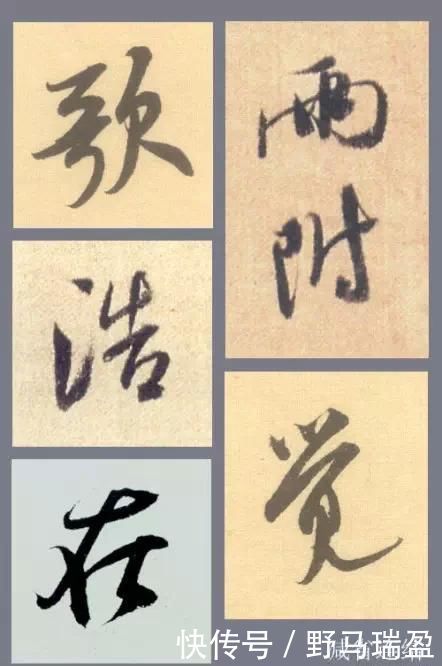 歌
雨
附
浩
觉
在
快传号 / 野马瑞盈